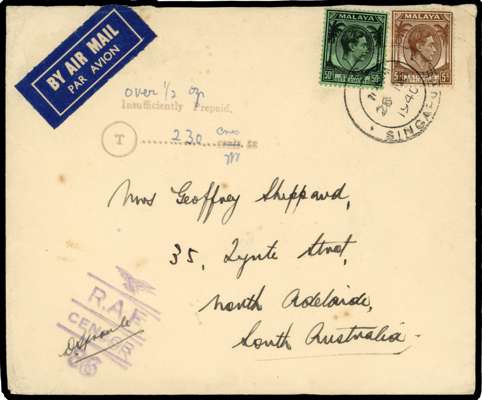 BY AIR MAIL
PAR AVION
MALAYA
50c 50c
MALAYA
5c
28
1940
SINGAPORE
over 1/2 oz
Insufficiently Prepaid.
T 230 cms
cents
Mrs Geoffrey Sheppard,
35, Lynte Street,
North Adelaide,
South Australia.
R.A.F.
CENSOR